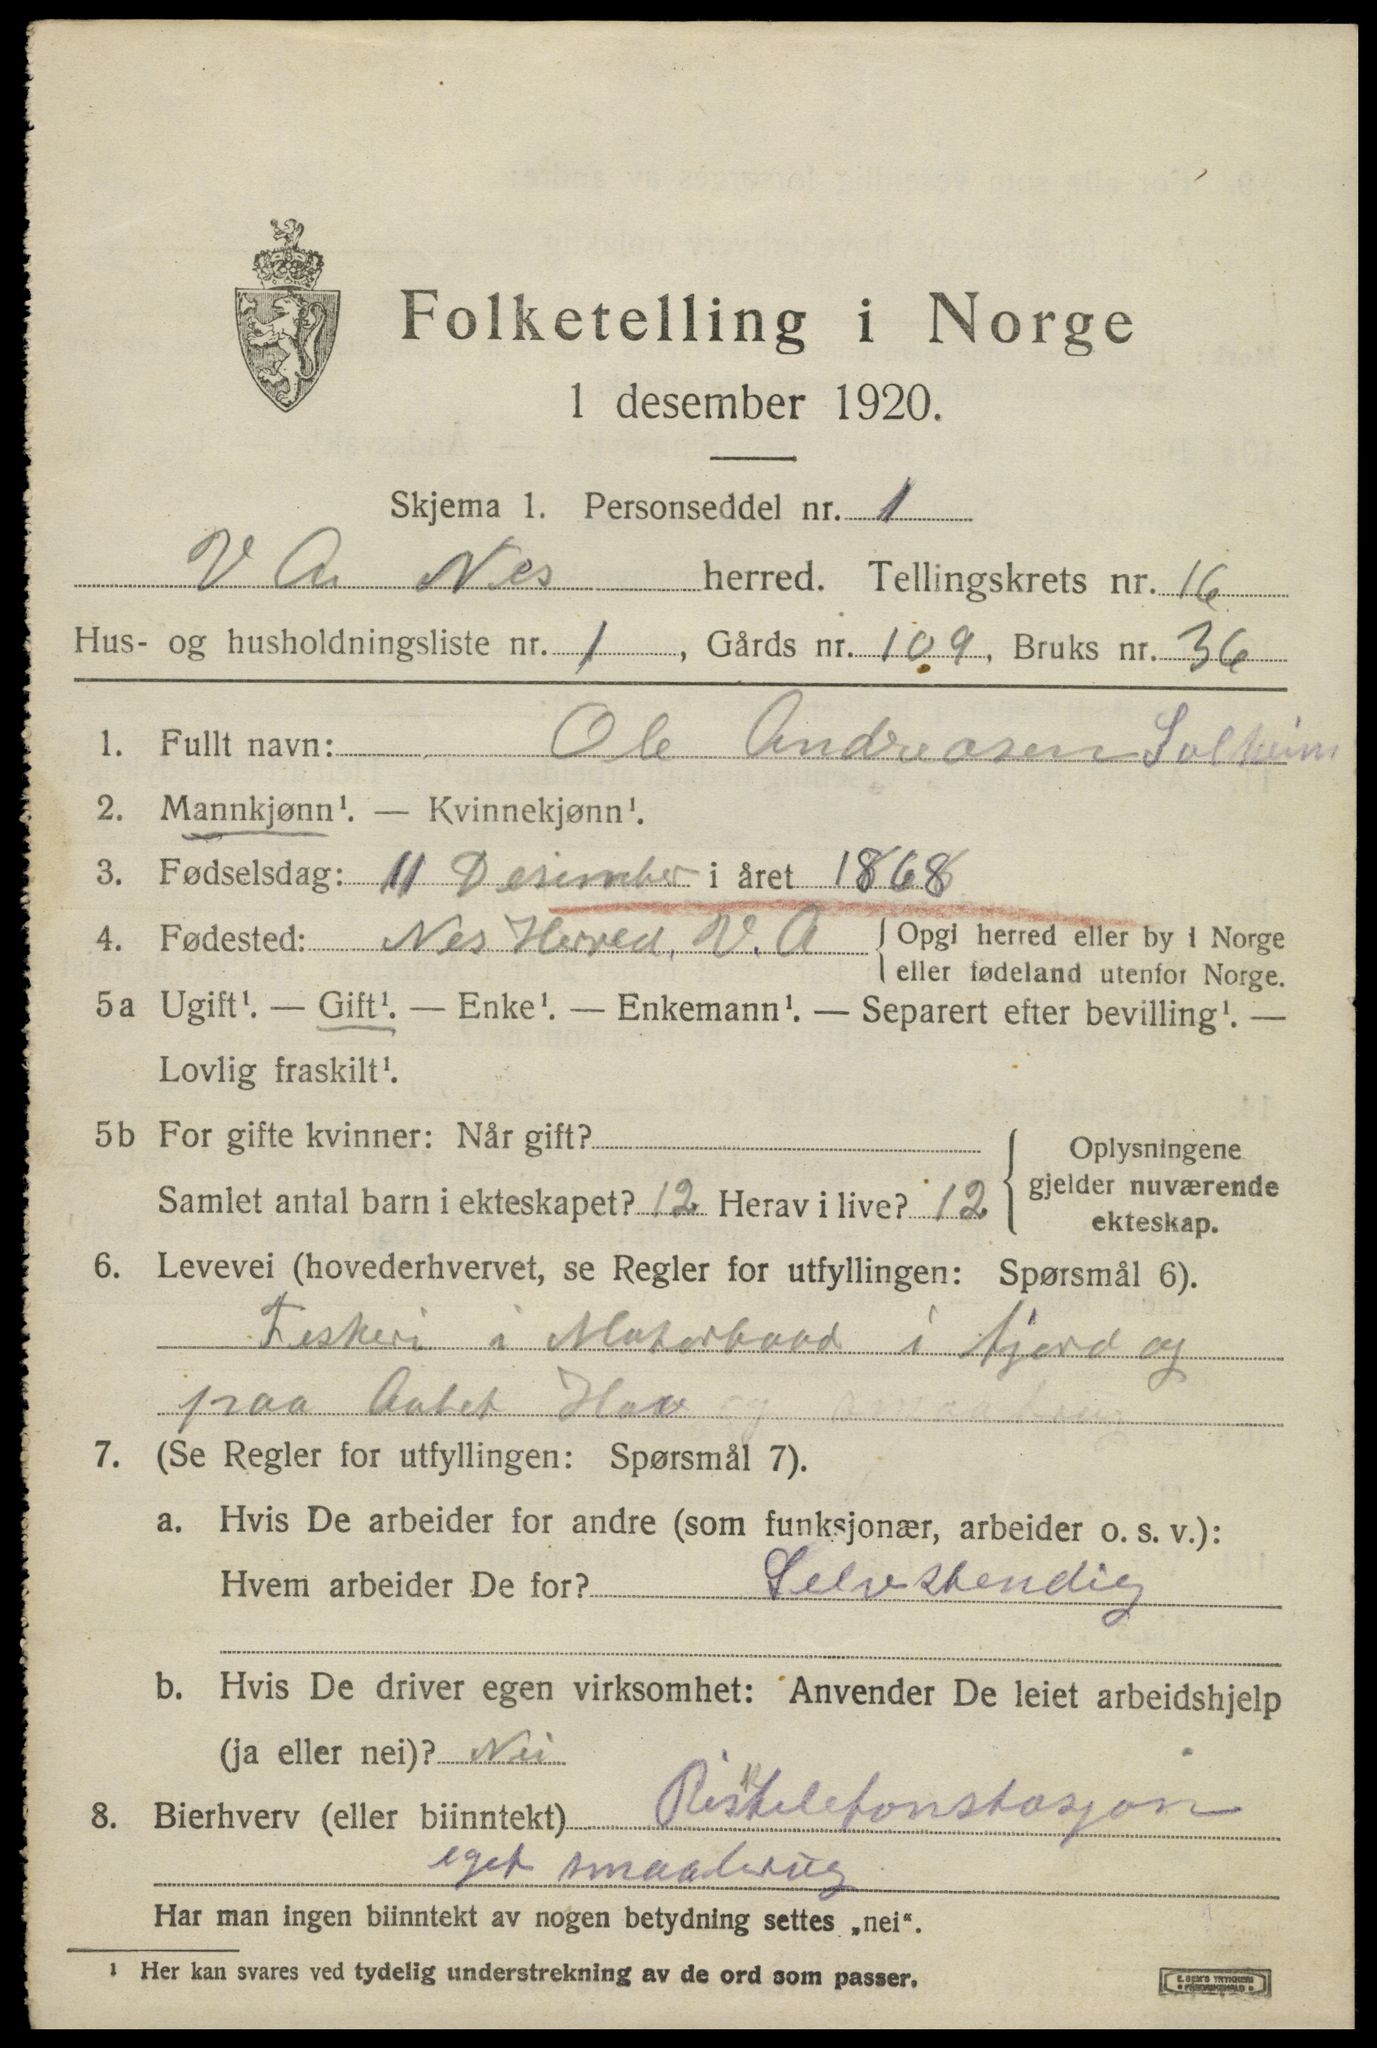 Folketelling i Norge
1 desember 1920.
Skjema 1. Personseddel nr. 1
V Au Nes herred. Tellingskrets nr. 16
Hus- og husholdningsliste nr. 1, Gårds nr. 109, Bruks nr. 36
1. Fullt navn: Ole Andreasen Solheim
2. Mannkjønn¹. — Kvinnekjønn¹.
3. Fødselsdag: 11 Desember i året 1868
4. Fødested: Nes Herred, V. A { Opgi herred eller by i Norge
eller fødeland utenfor Norge.
5a Ugift¹. — Gift¹. — Enke¹. — Enkemann¹. — Separert efter bevilling¹. —
Lovlig fraskilt¹.
5b For gifte kvinner: Når gift?
Samlet antal barn i ekteskapet? 12 Herav i live? 12
{ Oplysningene
gjelder nuværende
ekteskap.
6. Levevei (hovederhvervet, se Regler for utfyllingen: Spørsmål 6).
Feskeri i Motorbaad i fjord og
paa Aabet Hav og smaabrug
7. (Se Regler for utfyllingen: Spørsmål 7).
a. Hvis De arbeider for andre (som funksjonær, arbeider o. s. v.):
Hvem arbeider De for? Selvstendig
b. Hvis De driver egen virksomhet: Anvender De leiet arbeidshjelp
(ja eller nei)? Nei
8. Bierhverv (eller biinntekt) Rikstelefonstasjon
eget smaabrug
Har man ingen biinntekt av nogen betydning settes „nei“.
¹ Her kan svares ved tydelig understrekning av de ord som passer.